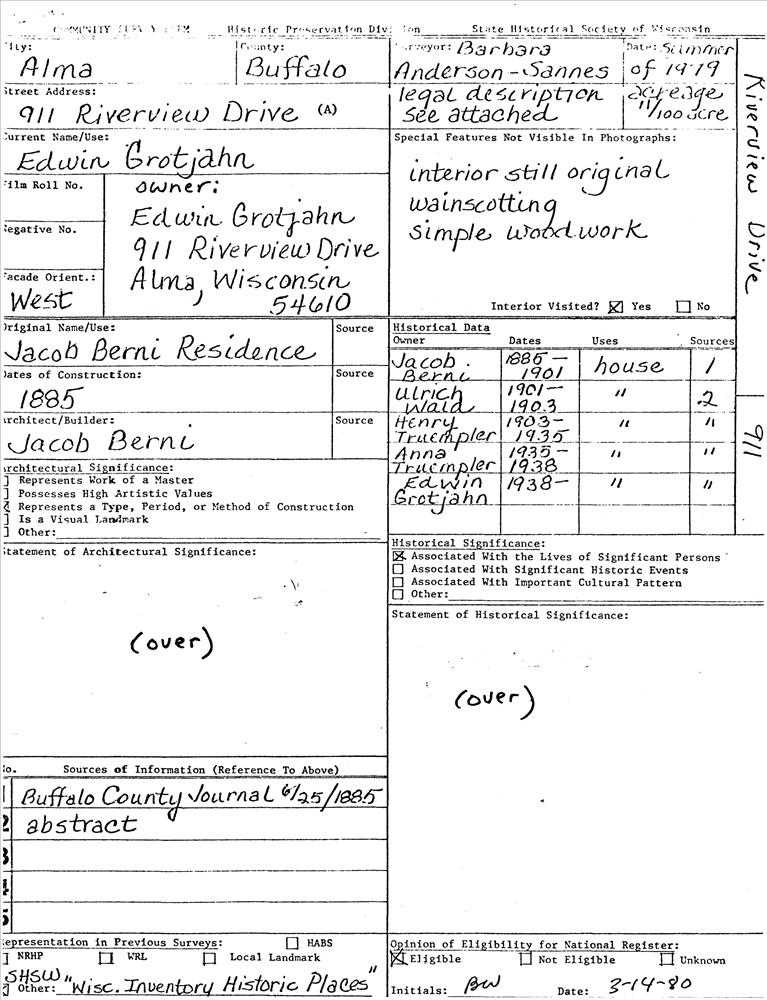 Historic Preservation Division State Historical Society of Wisconsin
City: County: Surveyor: Barbara Date: Summer
Alma Buffalo Anderson-Sannes of 1979
Street Address: legal description acreage
911 Riverview Drive (A) see attached 11/100 acre
Current Name/Use: Special Features Not Visible In Photographs:
Edwin Grotjahn
Film Roll No. owner: interior still original
Edwin Grotjahn wainscotting
Negative No. 911 Riverview Drive simple woodwork
Facade Orient.: Alma, Wisconsin
West 54610 Interior Visited? ☒ Yes ☐ No
Original Name/Use: Source
Jacob Berni Residence
Dates of Construction: Source
1885
Architect/Builder: Source
Jacob Berni
Architectural Significance:
] Represents Work of a Master
] Possesses High Artistic Values
Represents a Type, Period, or Method of Construction
] Is a Visual Landmark
] Other:
Statement of Architectural Significance:
(over)
Historical Data
Owner Dates Uses Sources
Jacob Berni 1885-1901 house 1
Ulrich Wald 1901-1903 " 2
Henry Truempler 1903-1935 " "
Anna Truempler 1935-1938 " "
Edwin Grotjahn 1938- " "
Historical Significance:
☒ Associated With the Lives of Significant Persons
☐ Associated With Significant Historic Events
☐ Associated With Important Cultural Pattern
☐ Other:
Statement of Historical Significance:
(over)
No. Sources of Information (Reference To Above)
1 Buffalo County Journal 6/25/1885
2 abstract
3
4
5
Representation in Previous Surveys: ☐ HABS
] NRHP ☐ WRL ☐ Local Landmark
SHSW
Other: "Wisc. Inventory Historic Places"
Opinion of Eligibility for National Register:
☒ Eligible ☐ Not Eligible ☐ Unknown
Initials: BW Date: 3-14-80
Riverview Drive
911